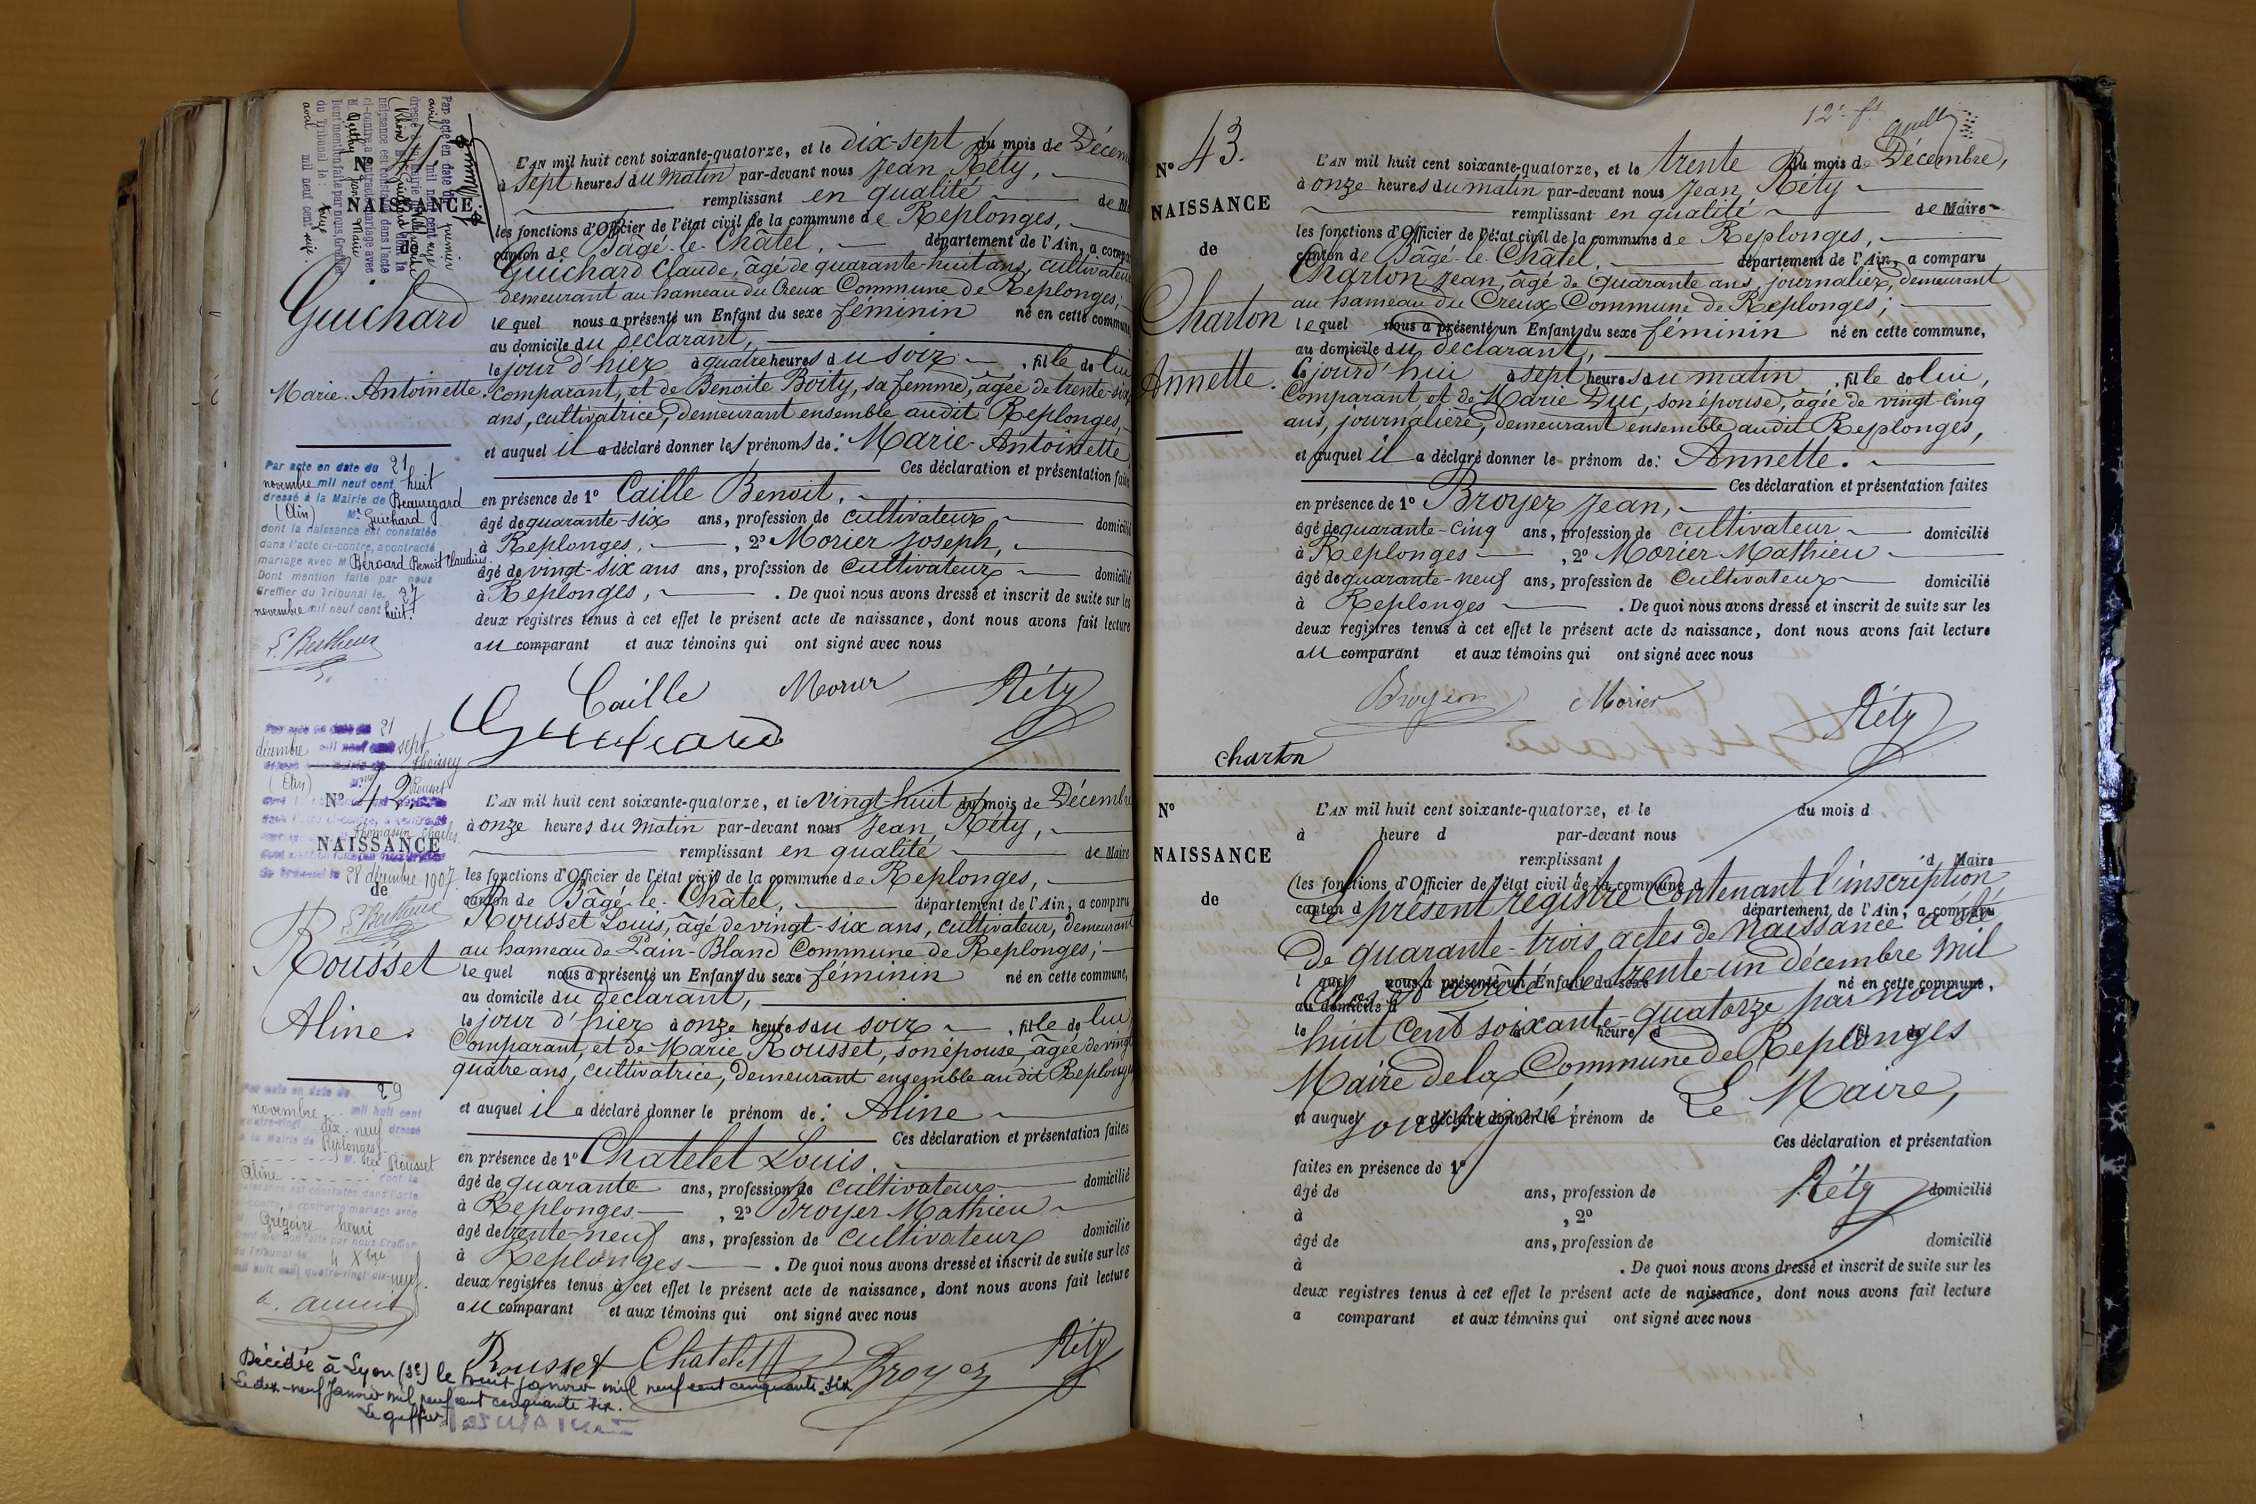 Par acte en date du premier
avril mil neuf cent seize
dressé
naissance est constatée dans l'acte
ci-contre, a contracté mariage avec
M. Quthy Jean Marie
Dont mention faite par nous, Greffier
du Tribunal le : treize
avril mil neuf cent seize.
N° 41.
NAISSANCE
de
Guichard
Marie-Antoinette.
L'AN mil huit cent soixante-quatorze, et le dix-sept du mois de Décem
à sept heures du matin par-devant nous Jean Réty,
remplissant en qualité de M
les fonctions d'Officier de l'état civil de la commune de Replonges,
canton de Bâgé-le-Châtel, département de l'Ain, a compa
Guichard Claude, âgé de quarante-huit ans, cultivateur
demeurant au hameau du Creux Commune de Replonges;
lequel nous a présenté un Enfant du sexe féminin né en cette commune,
au domicile du déclarant,
le jour d'hier à quatre heures du soir, fille de lui
comparant, et de Benoite Boity, sa femme, âgée de trente-six
ans, cultivatrice, demeurant ensemble audit Replonges,
et auquel il a déclaré donner les prénoms de : Marie-Antoinette
Ces déclaration et présentation faites
en présence de 1° Caille Benoit,
âgé de quarante-six ans, profession de cultivateur domicilié
à Replonges, , 2° Morier Joseph,
âgé de vingt-six ans ans, profession de cultivateur domicilié
à Replonges, . De quoi nous avons dressé et inscrit de suite sur les
deux registres tenus à cet effet le présent acte de naissance, dont nous avons fait lecture
au comparant et aux témoins qui ont signé avec nous
Caille Morier Réty
Guichard
Par acte en date du 21
novembre mil neuf cent huit
dressé à la Mairie de Beauregard
(Ain) Mle Guichard
dont la naissance est constatée
dans l'acte ci-contre, a contracté
mariage avec M Béroard Benoit Claudius
Dont mention faite par nous
Greffier du Tribunal le 27
novembre mil neuf cent huit.
Par acte en date du 21
décembre mil neuf cent sept
Thoissey
(Ain) Rousset
Thomassin Charles
28 décembre 1907.
N° 42.
NAISSANCE
de
Rousset
Aline.
L'AN mil huit cent soixante-quatorze, et le vingt-huit du mois de Décembre
à onze heures du matin par-devant nous Jean Réty,
remplissant en qualité de Maire
les fonctions d'Officier de l'état civil de la commune de Replonges,
canton de Bâgé-le-Châtel, département de l'Ain, a comparu
Rousset Louis, âgé de vingt-six ans, cultivateur, demeurant
au hameau de Pain-Blanc Commune de Replonges;
lequel nous a présenté un Enfant du sexe féminin né en cette commune,
au domicile du déclarant,
le jour d'hier à onze heures du soir, fille de lui
Comparant, et de Marie Rousset, son épouse, âgée de vingt
quatre ans, cultivatrice, demeurant ensemble audit Replonges
et auquel il a déclaré donner le prénom de : Aline
Ces déclaration et présentation faites
en présence de 1° Chatelet Louis,
âgé de quarante ans, profession de cultivateur domicilié
à Replonges , 2° Broyer Mathieu
âgé de trente-neuf ans, profession de cultivateur domicilié
à Replonges . De quoi nous avons dressé et inscrit de suite sur les
deux registres tenus à cet effet le présent acte de naissance, dont nous avons fait lecture
au comparant et aux témoins qui ont signé avec nous
Rousset Chatelet Broyer Réty
Par acte en date du 29
novembre mil huit cent
quatre-vingt dix-neuf dressé
à la Mairie de Replonges
M. Rousset
Aline dont la
naissance est constatée dans l'acte
ci-contre a contracté mariage avec
Grégoire Henri
Dont mention faite par nous Greffier
du Tribunal le 4 Xbre
mil huit cent quatre-vingt dix-neuf.
Décédée à Lyon (3e) le huit janvier mil neuf cent cinquante six
Le dix-neuf Janvier mil neuf cent cinquante six.
Le greffier
12e ft
N° 43.
NAISSANCE
de
Charton
Annette.
L'AN mil huit cent soixante-quatorze, et le trente du mois de Décembre,
à onze heures du matin par-devant nous Jean Réty
remplissant en qualité de Maire
les fonctions d'Officier de l'état civil de la commune de Replonges,
canton de Bâgé-le-Châtel, département de l'Ain, a comparu
Charton Jean, âgé de quarante ans, journalier, demeurant
au hameau du Creux Commune de Replonges;
lequel nous a présenté un Enfant du sexe féminin né en cette commune,
au domicile du déclarant,
le jourd'hui à sept heures du matin, fille de lui,
Comparant et de Marie Duc, son épouse, âgée de vingt-cinq
ans, journalière, demeurant ensemble audit Replonges,
et auquel il a déclaré donner le prénom de : Annette.
Ces déclaration et présentation faites
en présence de 1° Broyer Jean,
âgé de quarante-cinq ans, profession de cultivateur domicilié
à Replonges , 2° Morier Mathieu
âgé de quarante-neuf ans, profession de cultivateur domicilié
à Replonges . De quoi nous avons dressé et inscrit de suite sur les
deux registres tenus à cet effet le présent acte de naissance, dont nous avons fait lecture
au comparant et aux témoins qui ont signé avec nous
Broyer Morier Réty
charton
N°
NAISSANCE
de
L'AN mil huit cent soixante-quatorze, et le du mois d
à heure d par-devant nous
remplissant d Maire
les fonctions d'Officier de l'état civil de la commune d
Le présent registre contenant l'inscription
canton d département de l'Ain, a comparu
de quarante-trois actes de naissance a été
l quel nous a présenté un Enfant du sexe né en cette commune,
Clos et arrêté le trente-un décembre mil
au domicile d
huit cent soixante-quatorze par nous
le à heure d fil de
Maire de la Commune de Replonges
soussigné; Le Maire,
et auquel a déclaré donner le prénom de
Ces déclaration et présentation
faites en présence de 1°
Réty
âgé de ans, profession de domicilié
à , 2°
âgé de ans, profession de domicilié
à . De quoi nous avons dressé et inscrit de suite sur les
deux registres tenus à cet effet le présent acte de naissance, dont nous avons fait lecture
a comparant et aux témoins qui ont signé avec nous